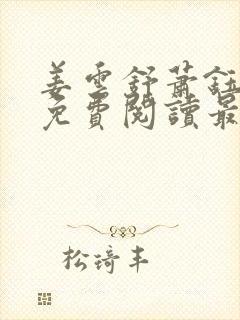 姜雲舒蕭鈺
免費閱讀最
松琦丰